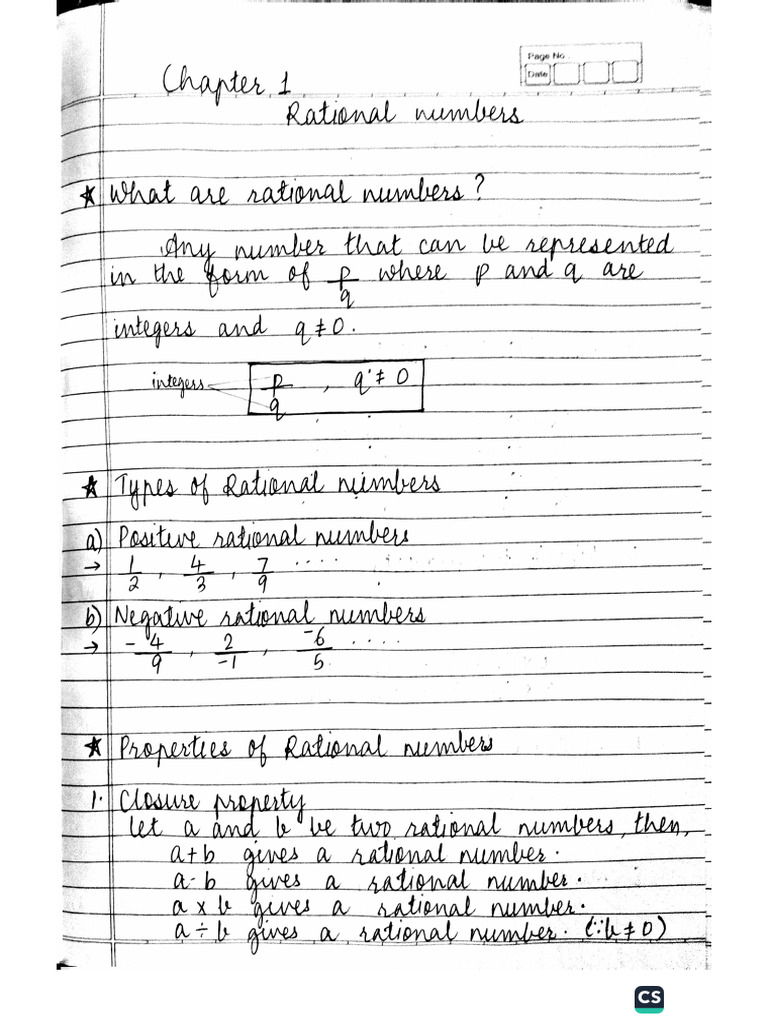 Page No.
Date
Chapter 1
Rational numbers
★ What are rational numbers?
Any number that can be represented
in the form of p/q where p and q are
integers and q ≠ 0.
integers p/q , q ≠ 0
★ Types of Rational numbers
a) Positive rational numbers
→ 1/2 , 4/3 , 7/9 ....
b) Negative rational numbers
→ -4/9 , 2/-1 , -6/5 ....
★ Properties of Rational numbers
1. Closure property
let a and b be two rational numbers, then,
a+b gives a rational number.
a-b gives a rational number.
a x b gives a rational number.
a ÷ b gives a rational number. (∵ b ≠ 0)
CS